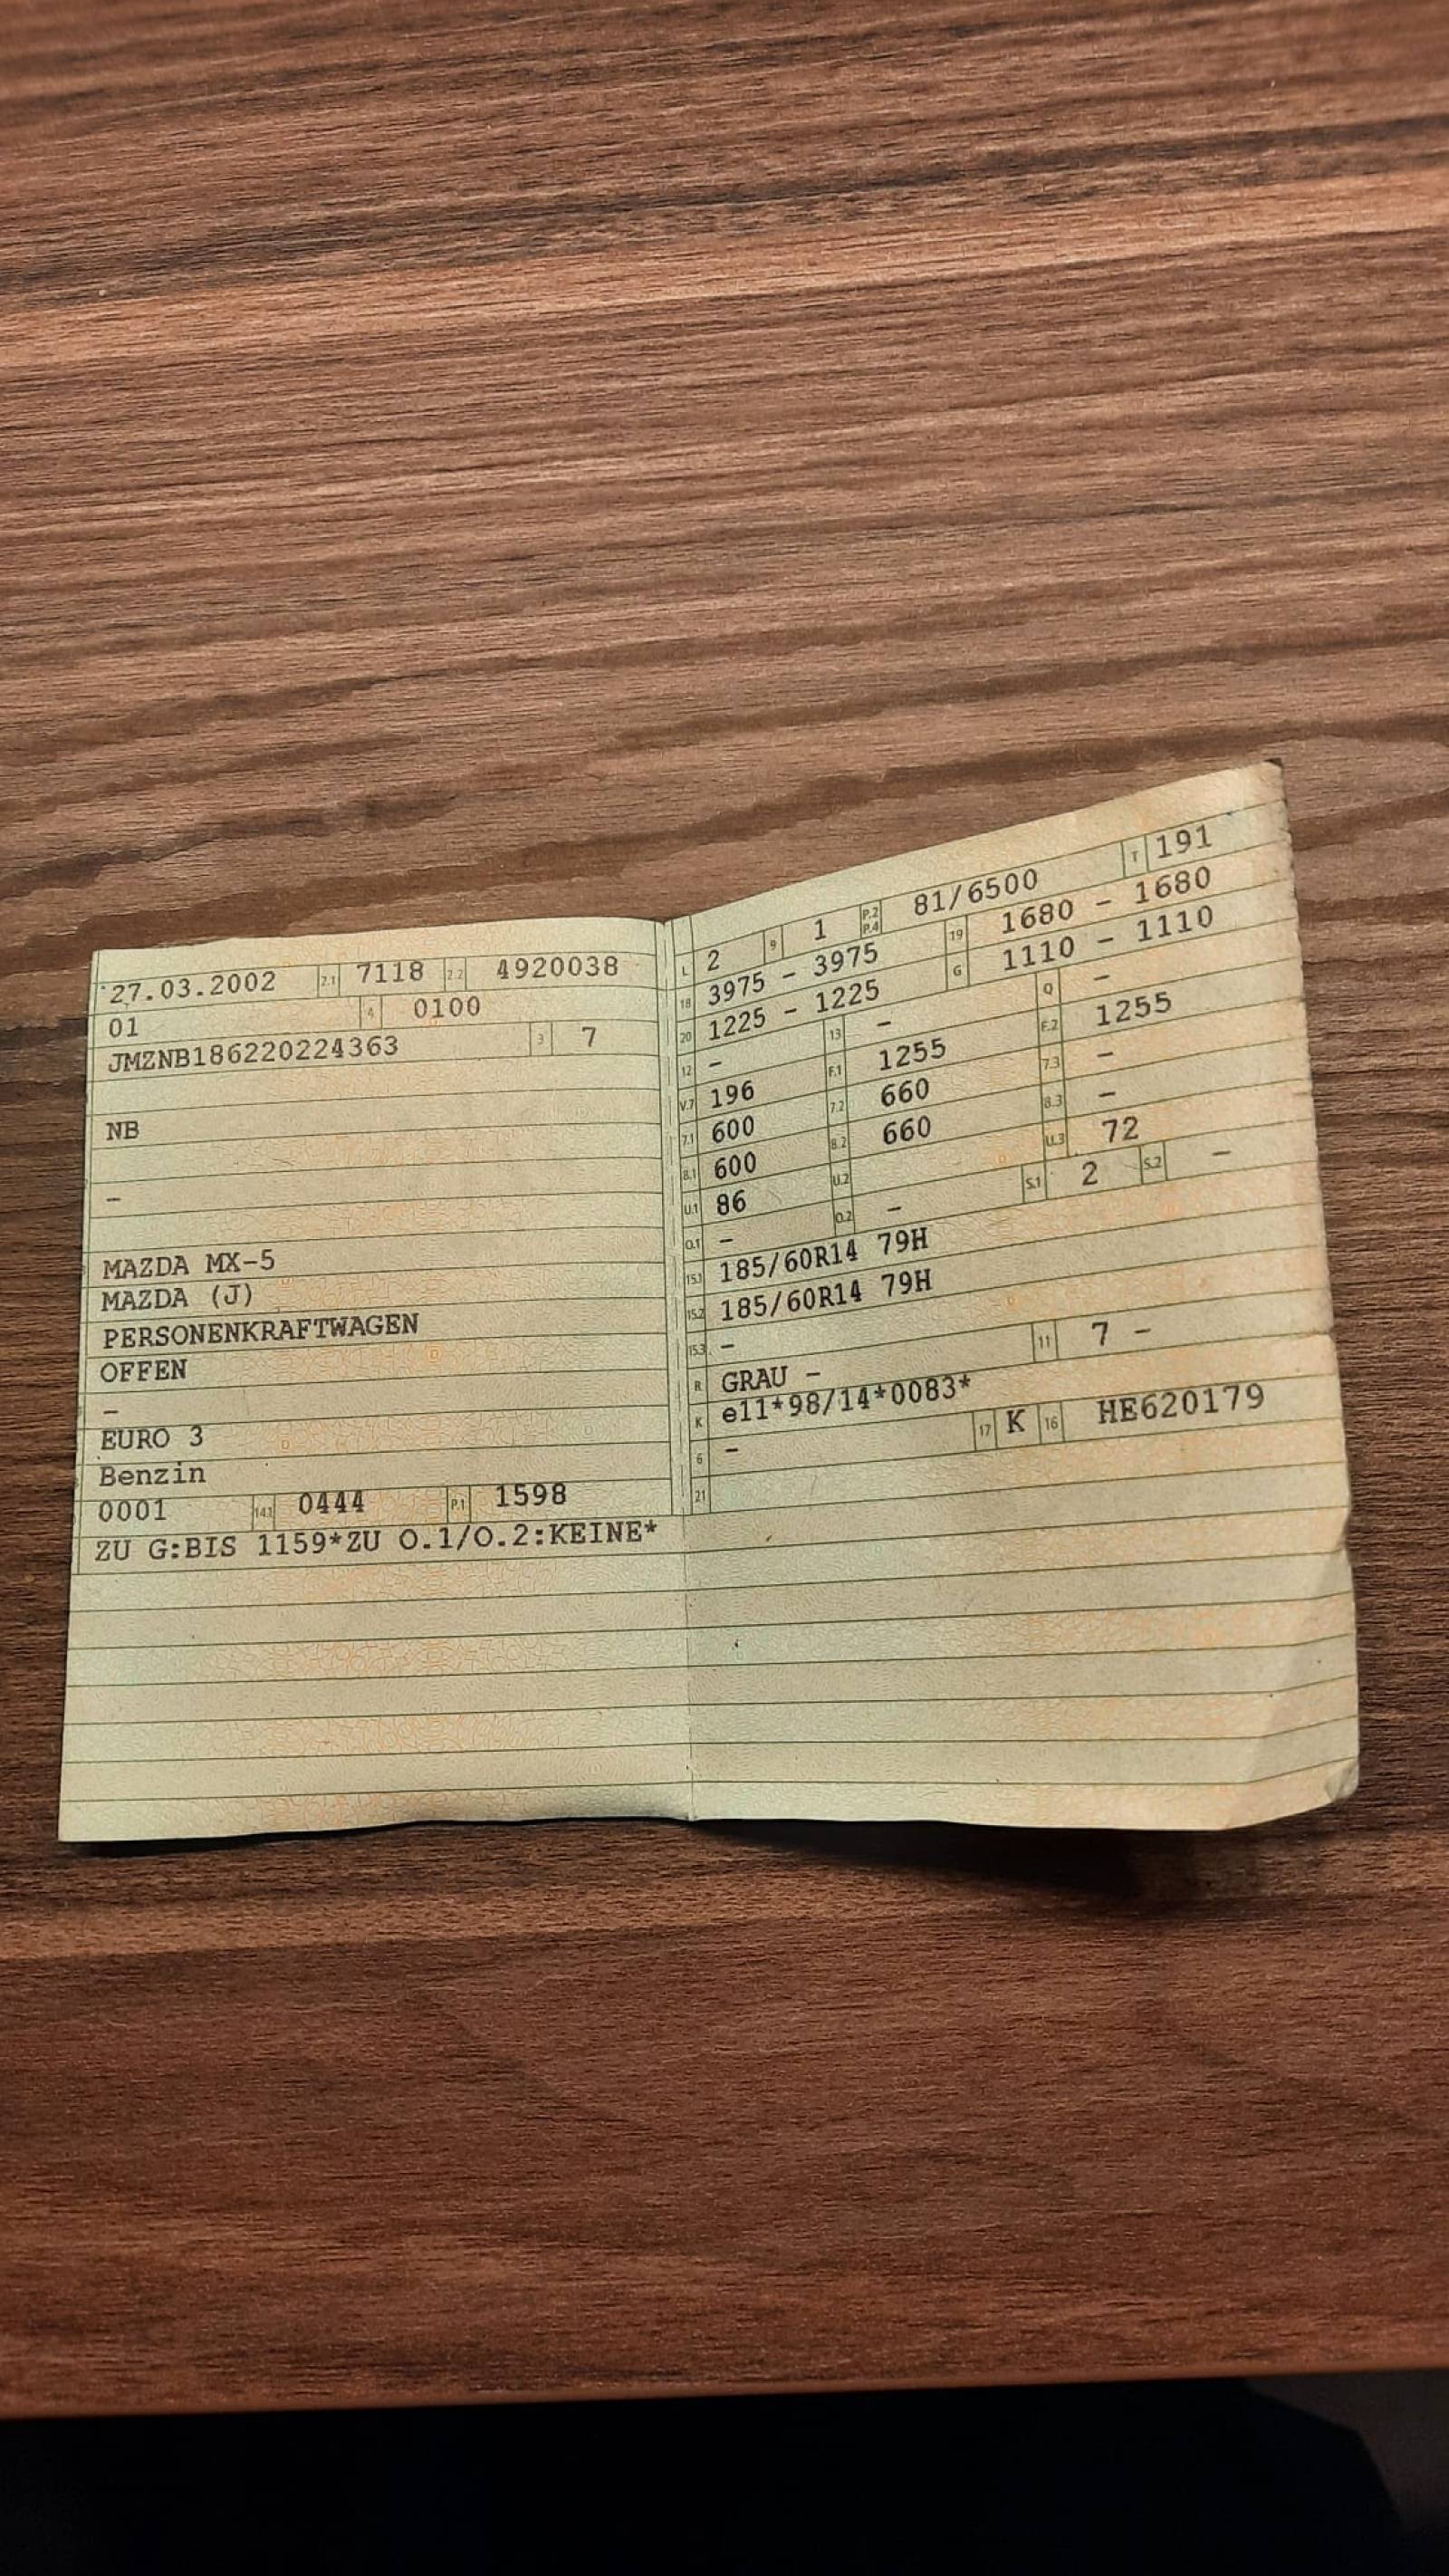 27.03.2002 2.1 7118 2.2 4920038
01 4 0100
JMZNB186220224363 3 7
NB
–
MAZDA MX-5
MAZDA (J)
PERSONENKRAFTWAGEN
OFFEN
–
EURO 3
Benzin
0001 14.1 0444 P.1 1598
ZU G:BIS 1159*ZU O.1/O.2:KEINE*
L 2 9 1 P.2 P.4 81/6500 T 191
18 3975 – 3975 19 1680 – 1680
20 1225 – 1225 G 1110 – 1110
12 – 13 – Q –
V.7 196 F.1 1255 F.2 1255
7.1 600 7.2 660 7.3 –
8.1 600 8.2 660 8.3 –
U.1 86 U.2 U.3 72
O.1 – O.2 – S.1 2 S.2 –
15.1 185/60R14 79H
15.2 185/60R14 79H
15.3 –
R GRAU – 11 7 –
K e11*98/14*0083*
6 – 17 K 16 HE620179
21